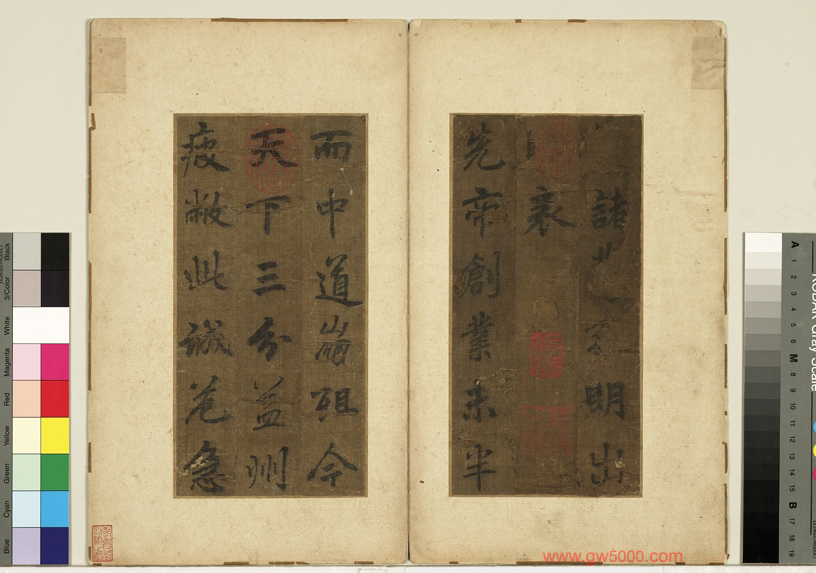 諸明出
表
先帝創業未半
而中道崩殂今
天下三分益州
疲敝此誠危急
Black
3/Color
White
Magenta
Red
Yellow
Green
Cyan
Blue
KODAK Gray Scale
A 1 2 3 4 5 6 M 8 9 10 11 12 13 14 15 B 17 18 19
www.gw5000.com